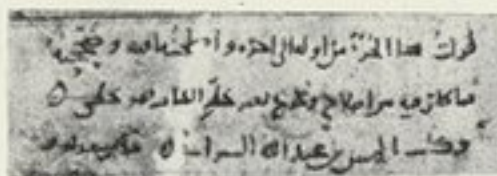 قرأت هذا الجزء من اوله الى اخره واصلحت ما فيه وصححته
فما كان فيه من اصلاح وتخريج بغير خط الكتاب فهو خطي
وكتب الحسن بن عبد الله السيرافي